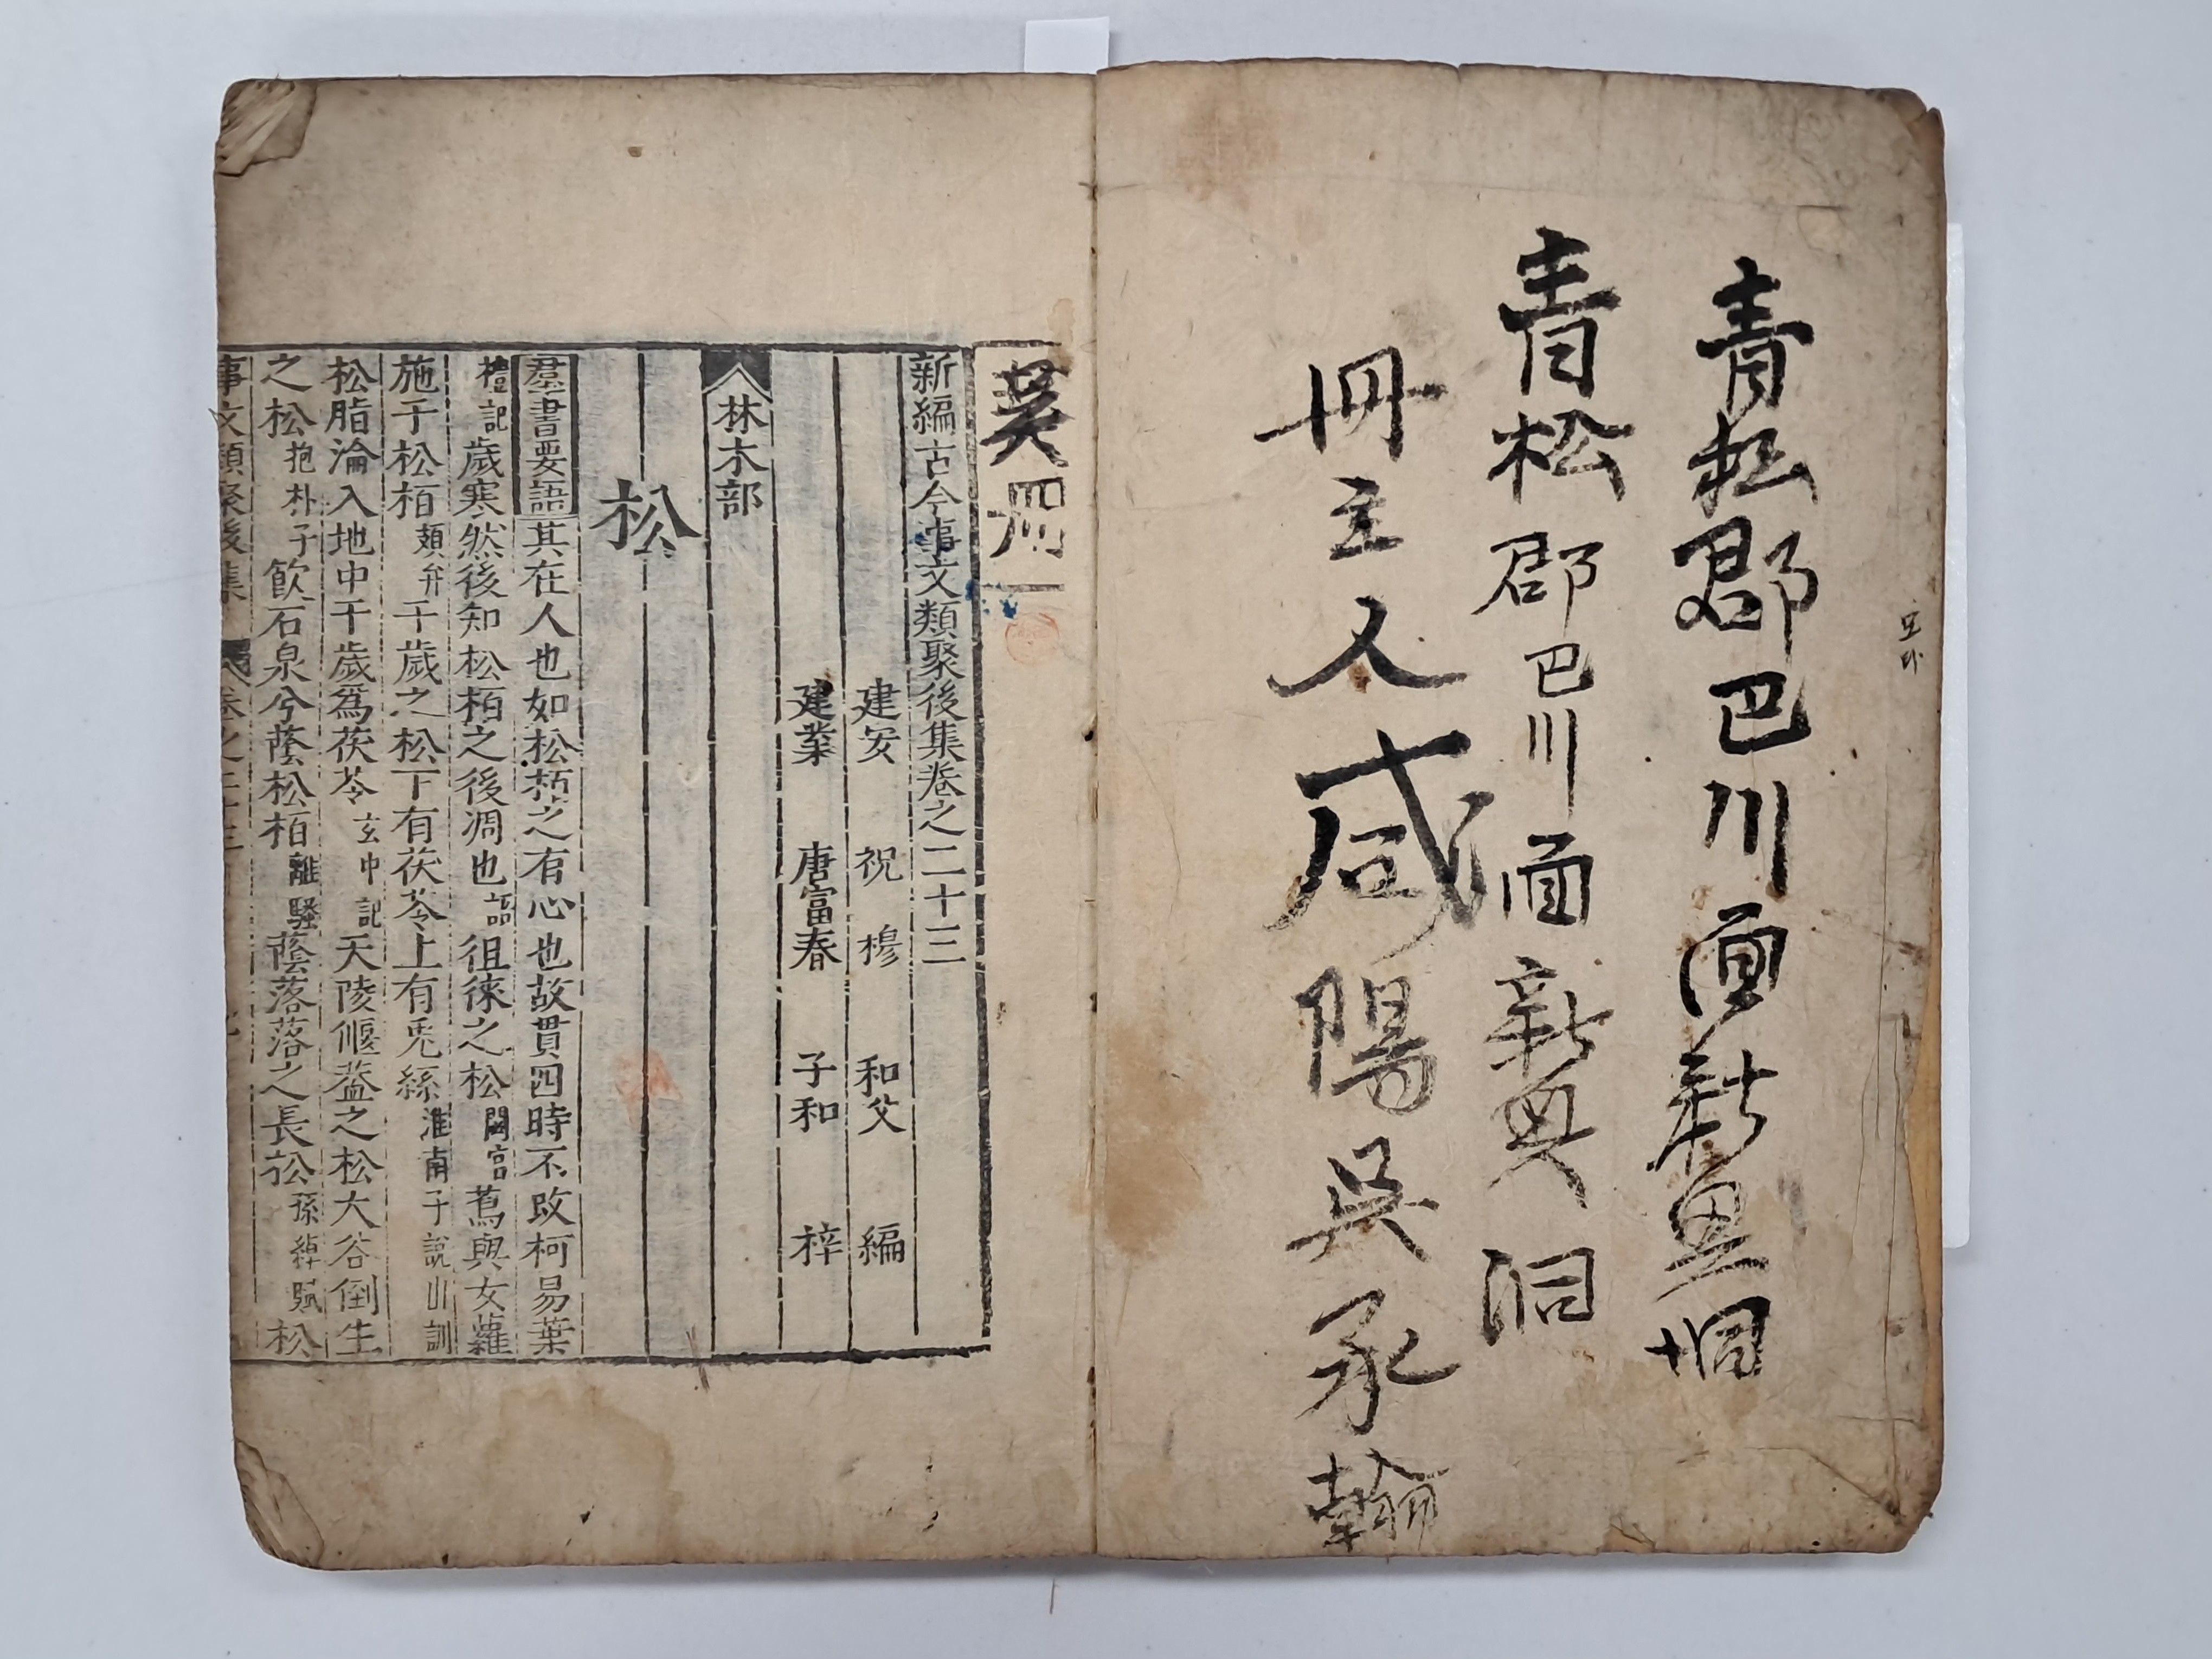 青松郡巴川面新興洞
青松郡巴川面新興洞
冊主人咸陽吳承翰
冊
新編古今事文類聚後集卷之二十三
建安 祝穆 和父 編
建業 唐富春 子和 梓
林木部
松
羣書要語 其在人也如松栢之有心也故貫四時不改柯易葉
禮記 歲寒然後知松栢之後凋也 語 徂徠之松 閟宮 蔦與女蘿
施于松栢 頍弁 千歲之松下有茯苓上有兎絲 淮南子說山訓
松脂淪入地中千歲爲茯苓 玄中記 天陵偃盖之松大谷倒生
之松 抱朴子 飮石泉兮蔭松栢 離騷 蔭落落之長松 孫綽賦 松
事文類聚後集 卷之二十三